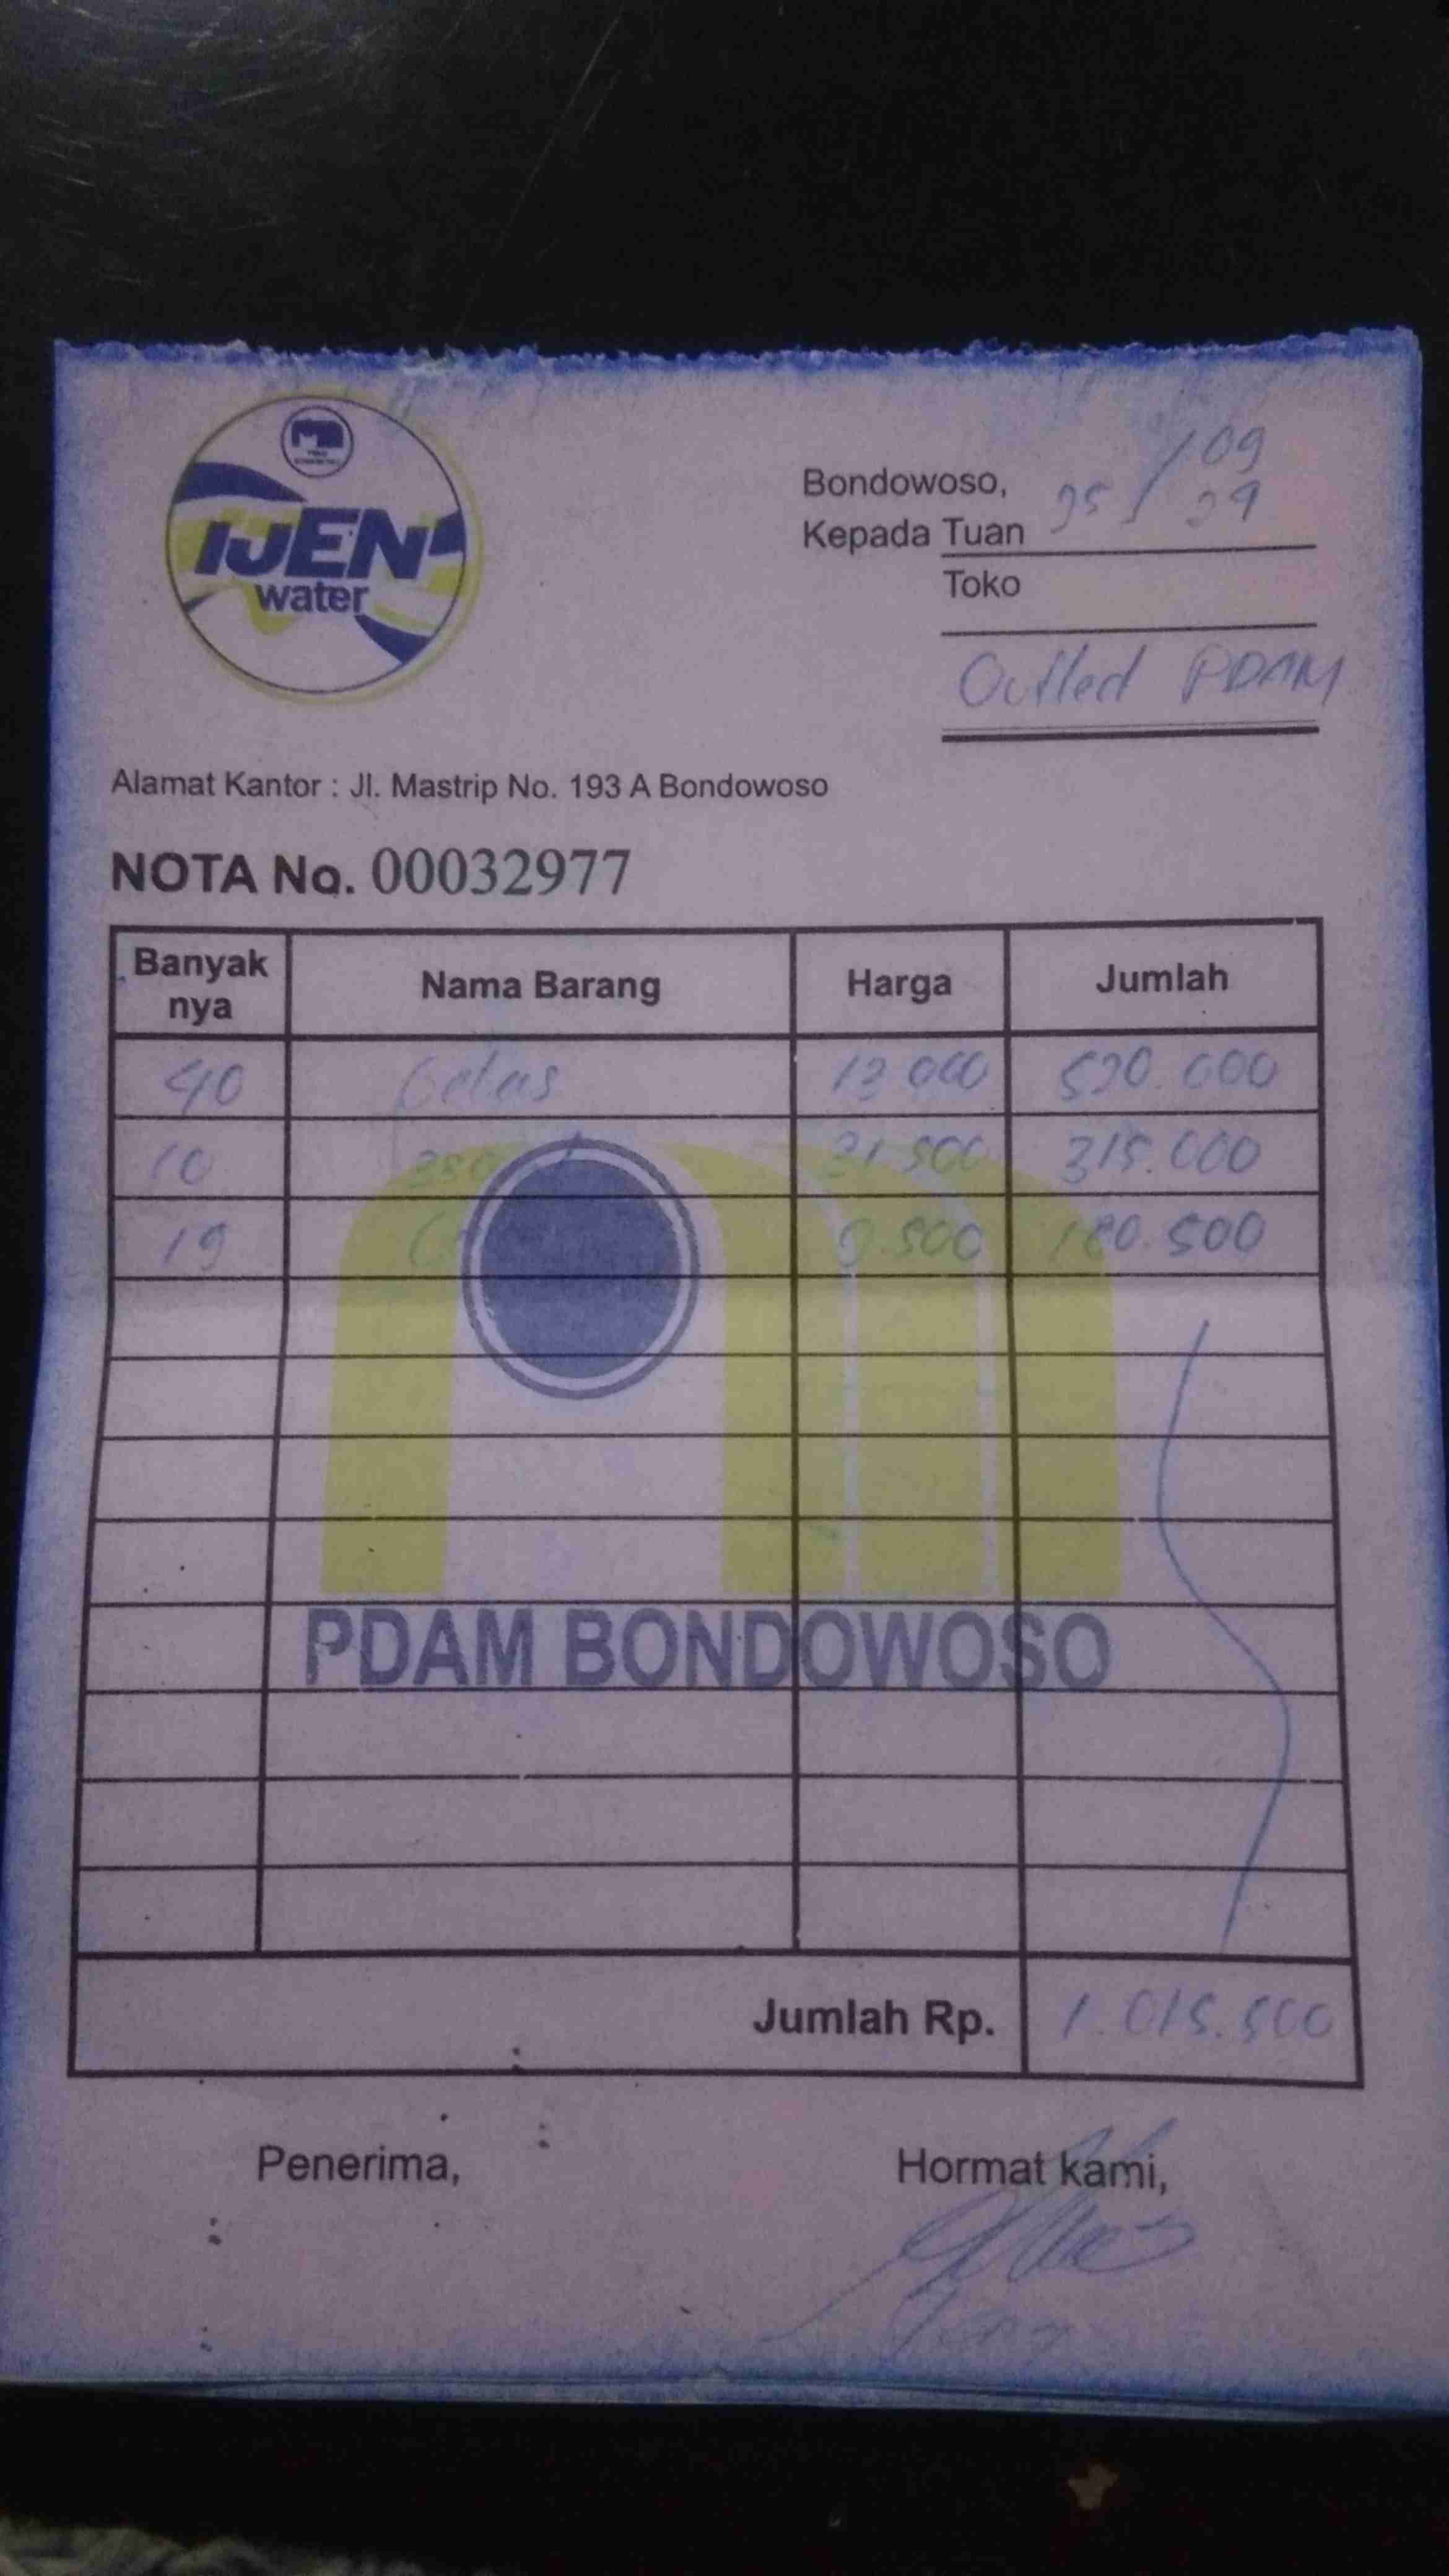 IJEN
water
Bondowoso,
Kepada Tuan
Toko
Outled PDAM
Alamat Kantor : Jl. Mastrip No. 193 A Bondowoso
NOTA No. 00032977
Banyak nya Nama Barang Harga Jumlah
40 Gelas 13 000 520.000
10 31 500 315.000
19 9.500 180.500
PDAM BONDOWOSO
Jumlah Rp. 1.015.500
Penerima, Hormat kami,